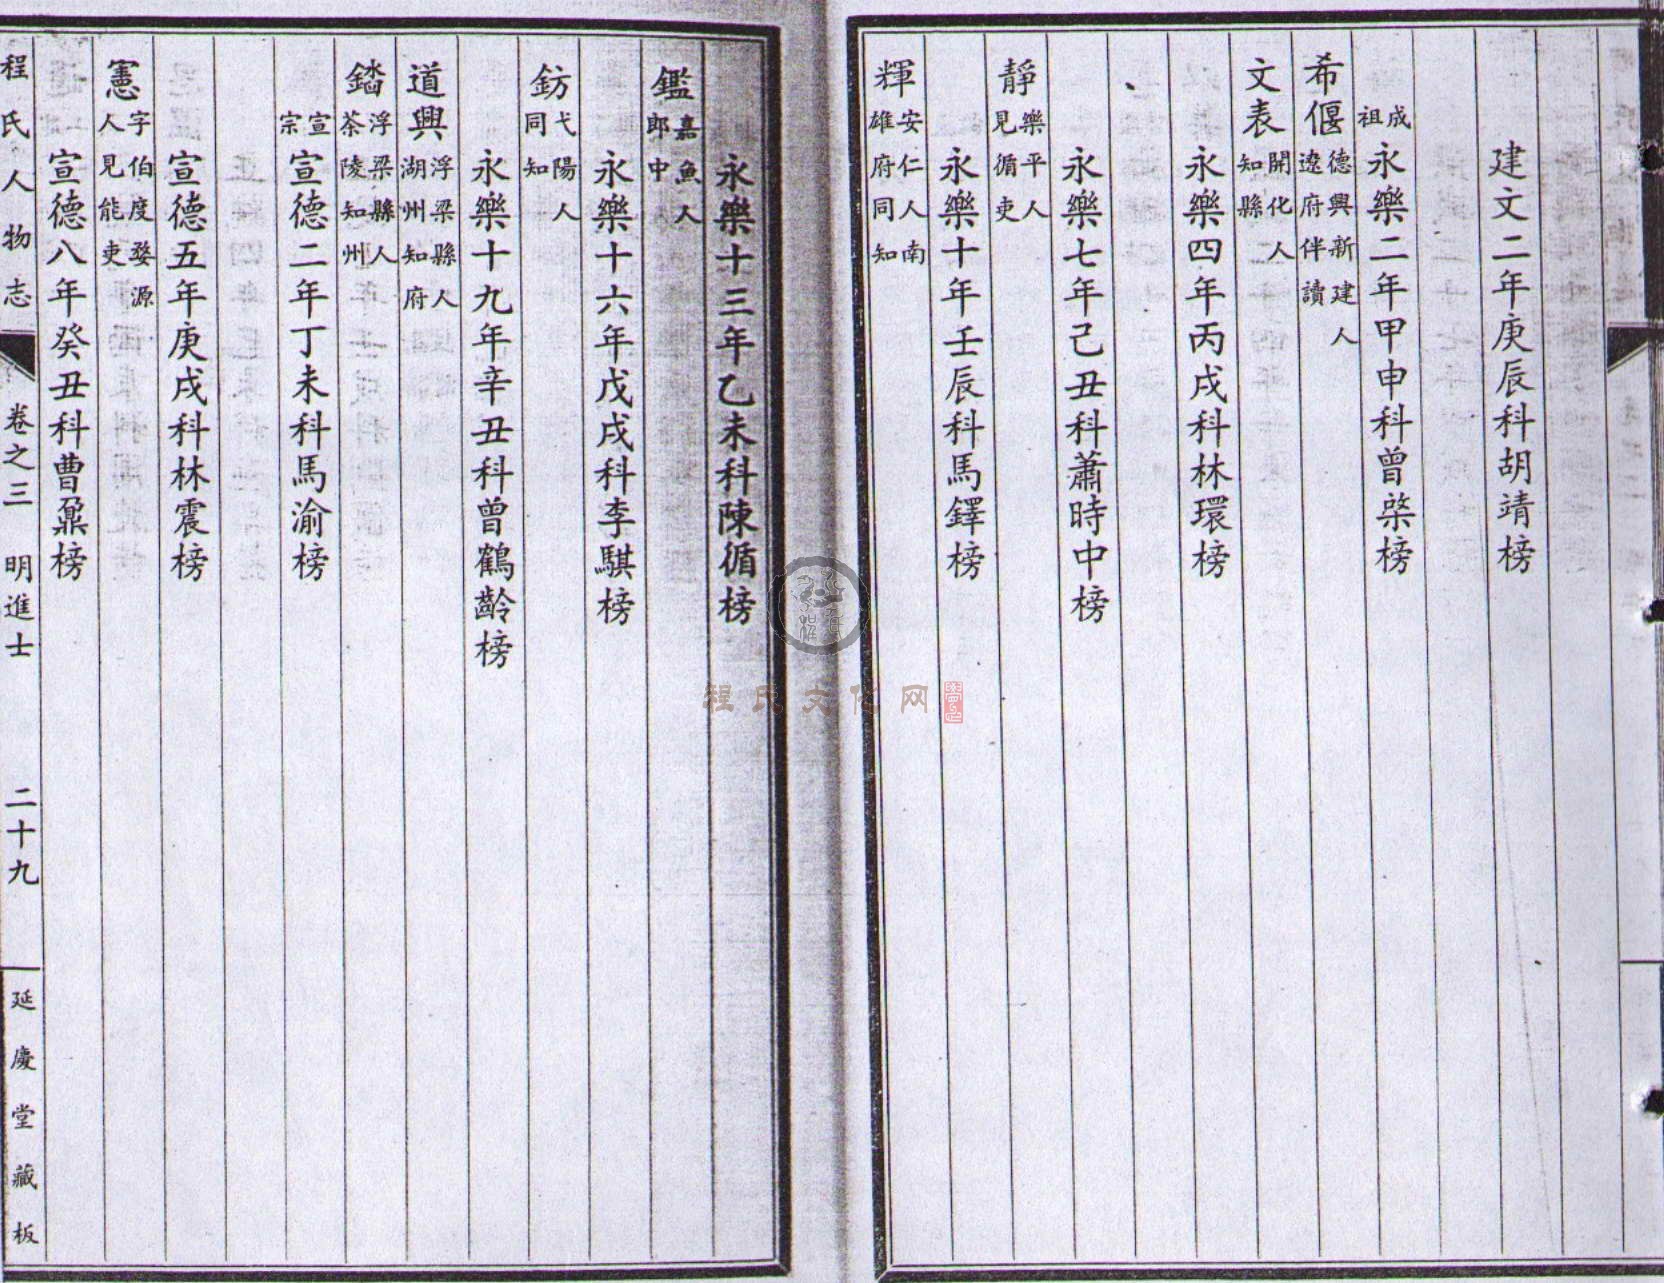 建文二年庚辰科胡靖榜
成祖永樂二年甲申科曾棨榜
希偃德興新建人遼府伴讀
文表開化人知縣
永樂四年丙戌科林環榜
永樂七年己丑科蕭時中榜
靜樂平人見循吏
永樂十年壬辰科馬鐸榜
輝安仁人南雄府同知
永樂十三年乙未科陳循榜
鑑嘉魚人郎中
永樂十六年戊戌科李騏榜
鈁弋陽人同知
永樂十九年辛丑科曾鶴齡榜
道興浮梁縣人湖州知府
浮梁縣人茶陵知州
宣宗宣德二年丁未科馬渝榜
宣德五年庚戌科林震榜
憲字伯度婺源人見能吏
宣德八年癸丑科曹鼐榜
程氏人物志 卷之三 明進士 二十九 延慶堂藏板
程氏文化网